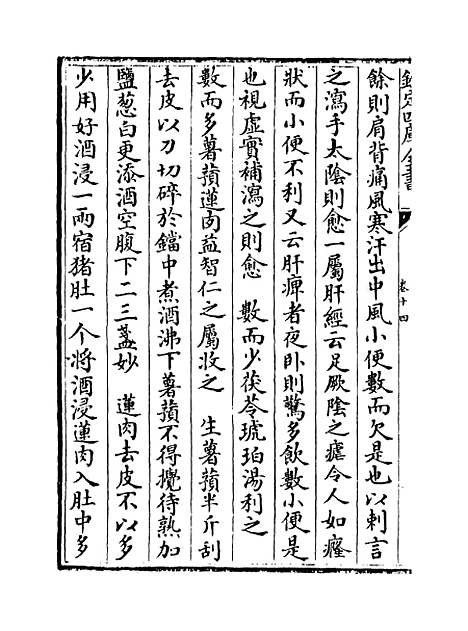 欽定四庫全書
卷十四
餘則肩背痛風寒汗出中風小便數而欠是也以刺言
之瀉手太陰則愈一屬肝經云足厥陰之瘧令人如癃
狀而小便不利又云肝痺者夜卧則驚多飲數小便是
也視虛實補瀉之則愈　數而少茯苓琥珀湯利之
數而多薯蕷蓮肉益智仁之屬收之　生薯蕷半斤刮
去皮以刀切碎於鐺中煮酒沸下薯蕷不得攪待熟加
鹽葱白更添酒空腹下二三盞妙　蓮肉去皮不以多
少用好酒浸一兩宿猪肚一个將酒浸蓮肉入肚中多